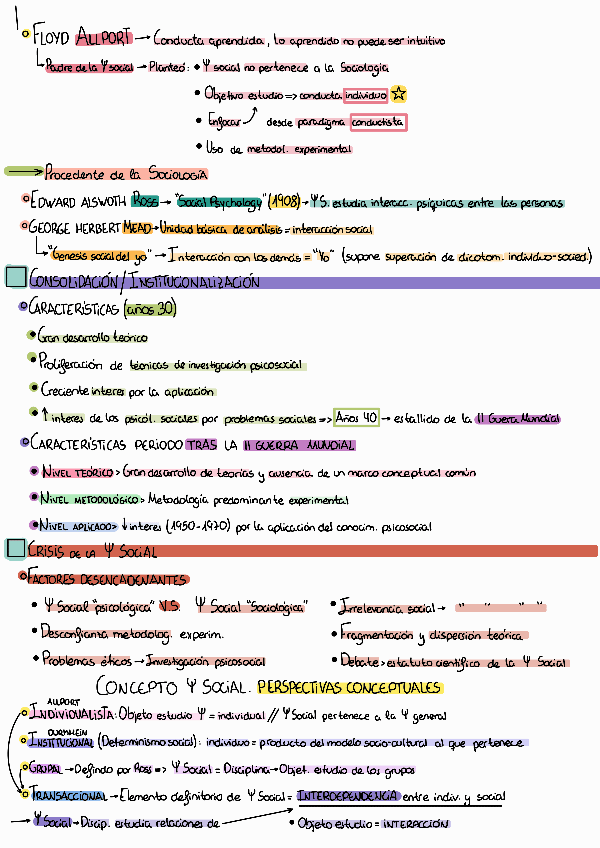 FLOYD ALLPORT → Conducta aprendida, lo aprendido no puede ser intuitivo
Padre de la Ψ social → Planteó: • Ψ social no pertenece a la Sociología
• Objetivo estudio => conducta individuo ☆
• Enfocar desde paradigma conductista
• Uso de metodol. experimental
→ Procedente de la Sociología
EDWARD ALSWOTH ROSS → "Social Psychology" (1908) → ΨS. estudia interacc. psíquicas entre las personas
GEORGE HERBERT MEAD → Unidad básica de análisis = interacción social
"Genesis social del yo" → Interacción con los demás = "Yo" (supone superación de dicotom. individuo-socied.)
CONSOLIDACIÓN / INSTITUCIONALIZACIÓN
CARACTERÍSTICAS (años 30)
• Gran desarrollo teórico
• Proliferación de técnicas de investigación psicosocial
• Creciente interes por la aplicación
• ↑ interes de los psicól. sociales por problemas sociales => Años 40 → estallido de la II Guerra Mundial
CARACTERÍSTICAS PERIODO TRAS LA II GUERRA MUNDIAL
• NIVEL TEÓRICO > Gran desarrollo de teorías y ausencia de un marco conceptual común
• NIVEL METODOLÓGICO > Metodología predominante experimental
• NIVEL APLICADO > ↓ interes (1950-1970) por la aplicación del conocim. psicosocial
CRISIS DE LA Ψ SOCIAL
FACTORES DESENCADENANTES
• Ψ Social "psicológica" V.S. Ψ Social "Sociológica"
• Irrelevancia social → " " " "
• Desconfianza metodolog. experim.
• Fragmentación y dispersión teórica
• Problemas éticos → Investigación psicosocial
• Debate > estatuto científico de la Ψ Social
CONCEPTO Ψ SOCIAL. PERSPECTIVAS CONCEPTUALES
ALLPORT
INDIVIDUALISTA: Objeto estudio Ψ = individual // Ψ Social pertenece a la Ψ general
DURKHEIN
INSTITUCIONAL (Determinismo social): individuo = producto del modelo socio-cultural al que pertenece
GRUPAL → Definido por Ross => Ψ Social = Disciplina → Objet. estudio de los grupos
TRANSACCIONAL → Elemento definitorio de Ψ Social = INTERDEPENDENCIA entre indiv. y social
→ Ψ Social → Discip. estudia relaciones de
• Objeto estudio = INTERACCIÓN